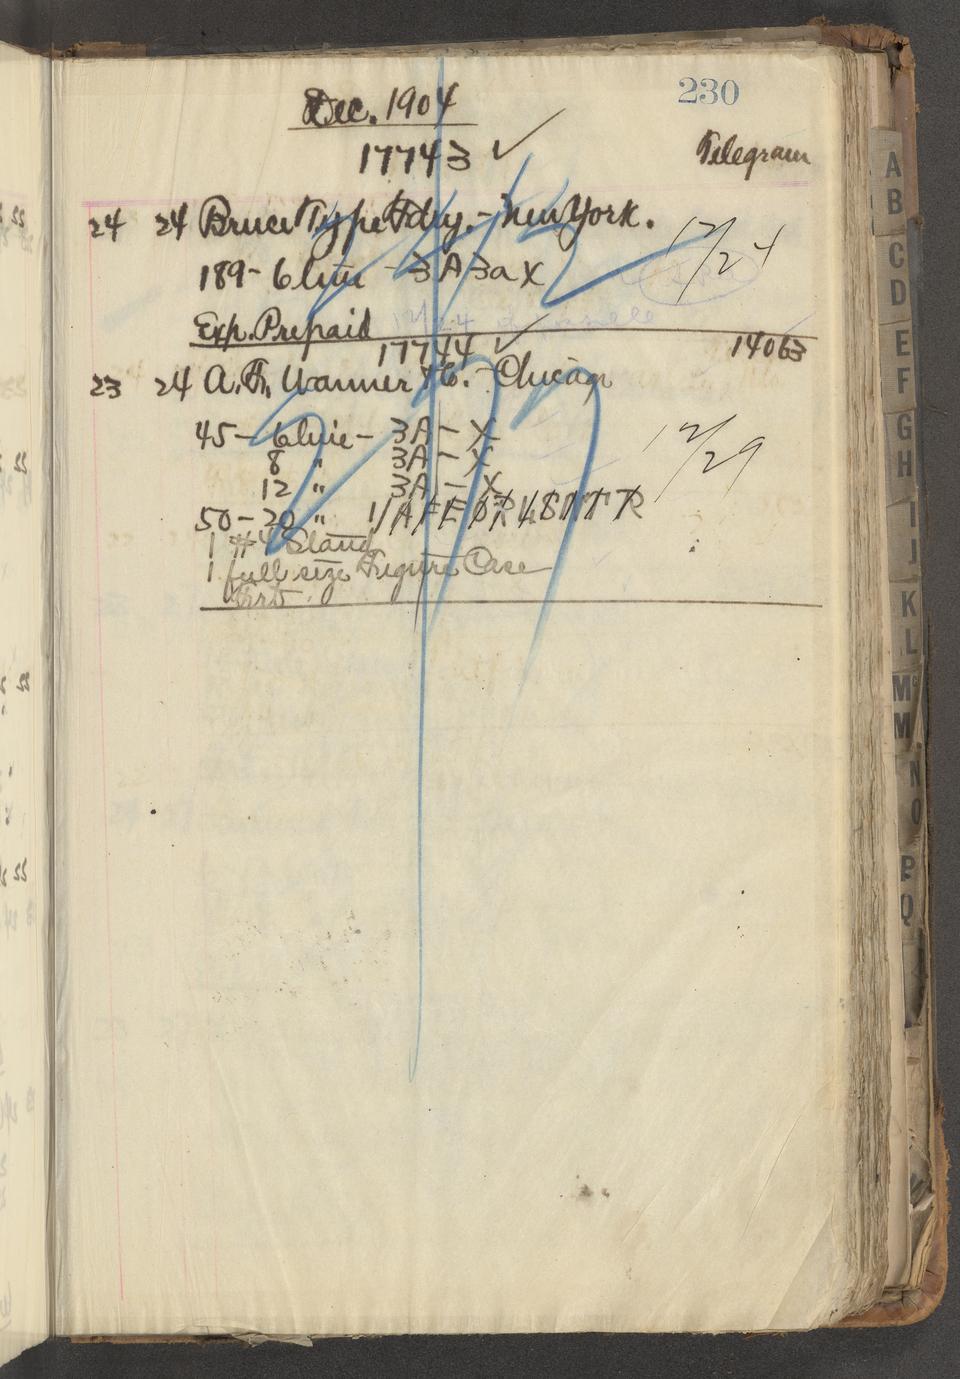 230
Dec. 1904
17743 ✓
Telegram
24 24 Bruce Type Fdry. - New York.
189 - 6 line - 3A 3a X
12/24
Exp. Prepaid
17744 ✓
14063
23 24 A. F. Wanner & Co. - Chicago
45 - 6 line - 3A - X
8 " 3A - X
12 " 3A - X
12/29
50 - 20 "
1 #4 Stand
1 full size Figure Case
A
B
C
D
E
F
G
H
I
J
K
L
Mc
M
N
O
P
Q